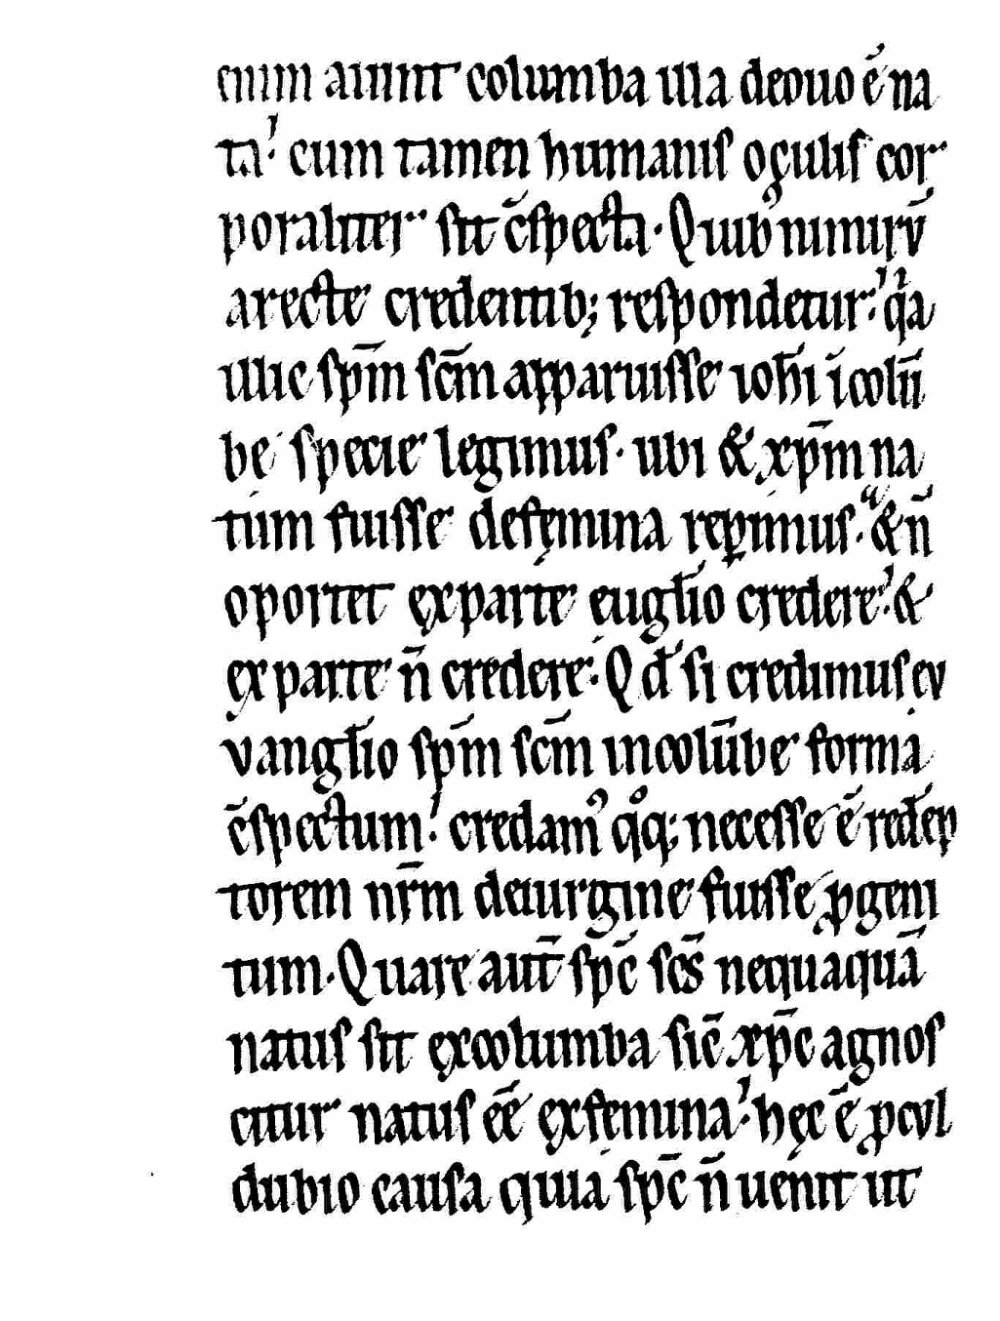 enim aiunt columba illa de ouo ē na
ta. cum tamen humanis oculis cor
poraliter sit c̄specta. Quib nimirū
a recte credentib; respondetur. qa
illic spm̄ scm̄ apparuisse ioh̄i ī colū
be specie legimus. ubi & xp̄m na
tum fuisse de fęmina rep̱imus. & n̄
oportet ex parte eugl̄io credere. &
ex parte n̄ credere. Qd̄ si credimus eu
vangl̄io spm̄ scm̄ in colūbe forma
c̄spectum. credam' qoq; necesse ē redēp
torem nr̄m de uirgine fuisse ꝓgeni
tum. Quare aut̄ spc̄ scs̄ nequaquā
natus sit ex columba sic̄ xp̄c agnos
citur natus eē ex femina. hęc ē ꝓcul
dubio causa quia spc̄ n̄ uenit ut